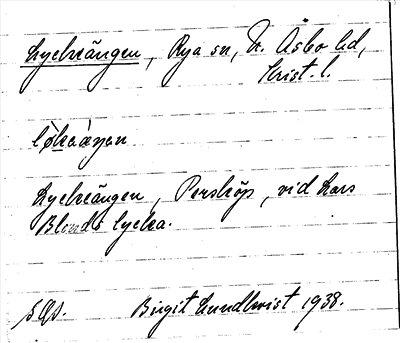 Lyckeängen, Rya sn, N. Åsbo hd,
Krist. l.
Lyckeängen, Perstorp, vid Lars
Blonds lycka.
Birgit Lundkvist 1938.